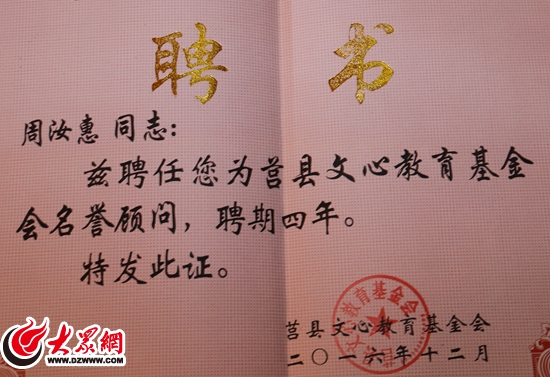 聘书
周汝惠 同志：
兹聘任您为莒县文心教育基金
会名誉顾问，聘期四年。
特发此证。
文心教育基金会
莒县文心教育基金会
二〇一六年十二月
大众网
WWW.DZWWW.COM